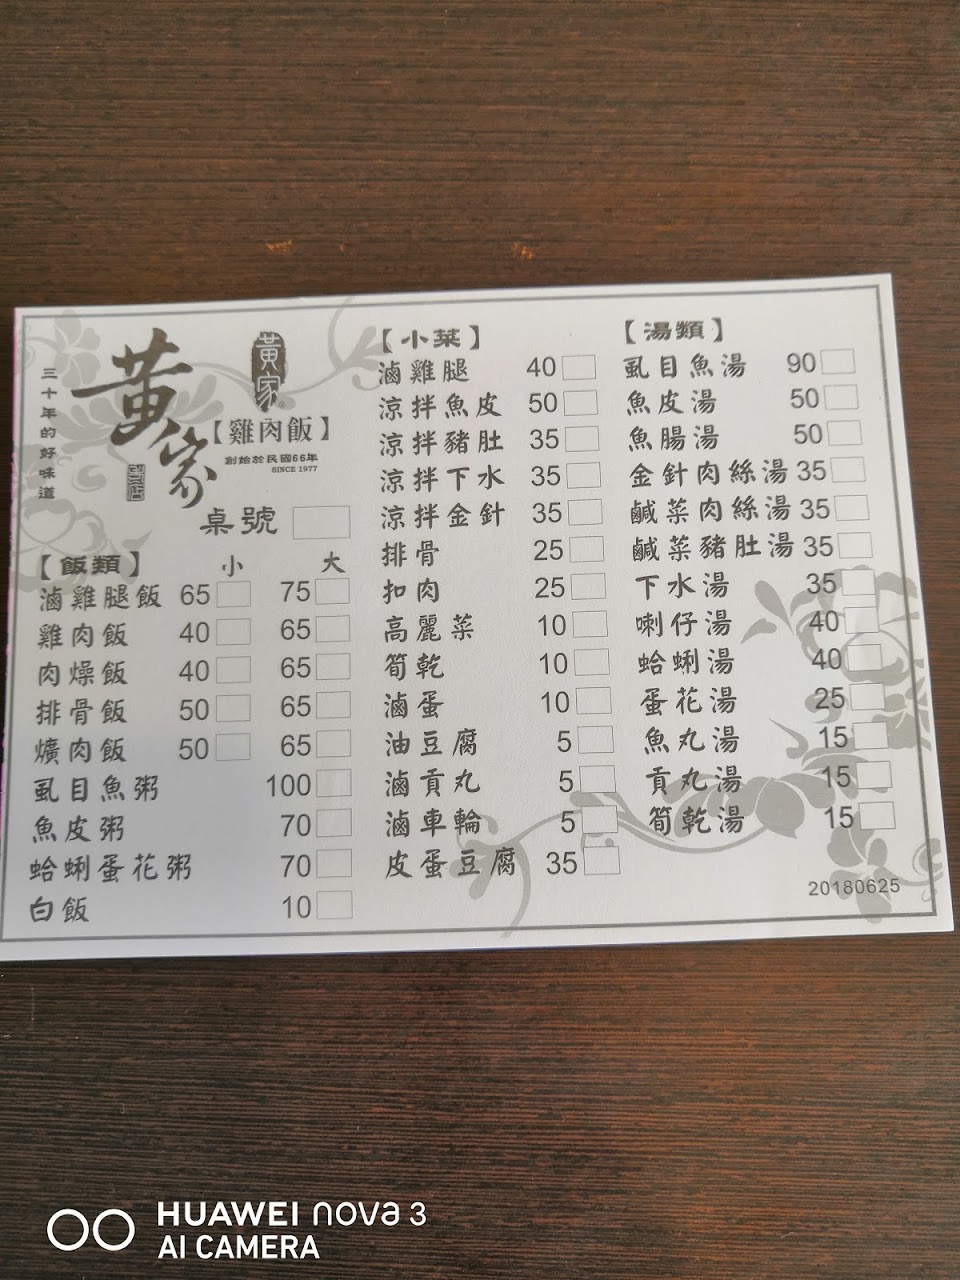 三十年的好味道
黃家
黃家
【雞肉飯】
創始於民國66年
SINCE 1977
桌號
【飯類】 小 大
滷雞腿飯 65 75
雞肉飯 40 65
肉燥飯 40 65
排骨飯 50 65
爌肉飯 50 65
虱目魚粥 100
魚皮粥 70
蛤蜊蛋花粥 70
白飯 10
【小菜】
滷雞腿 40
涼拌魚皮 50
涼拌豬肚 35
涼拌下水 35
涼拌金針 35
排骨 25
扣肉 25
高麗菜 10
筍乾 10
滷蛋 10
油豆腐 5
滷貢丸 5
滷車輪 5
皮蛋豆腐 35
【湯類】
虱目魚湯 90
魚皮湯 50
魚腸湯 50
金針肉絲湯 35
鹹菜肉絲湯 35
鹹菜豬肚湯 35
下水湯 35
喇仔湯 40
蛤蜊湯 40
蛋花湯 25
魚丸湯 15
貢丸湯 15
筍乾湯 15
20180625
HUAWEI nova 3
AI CAMERA